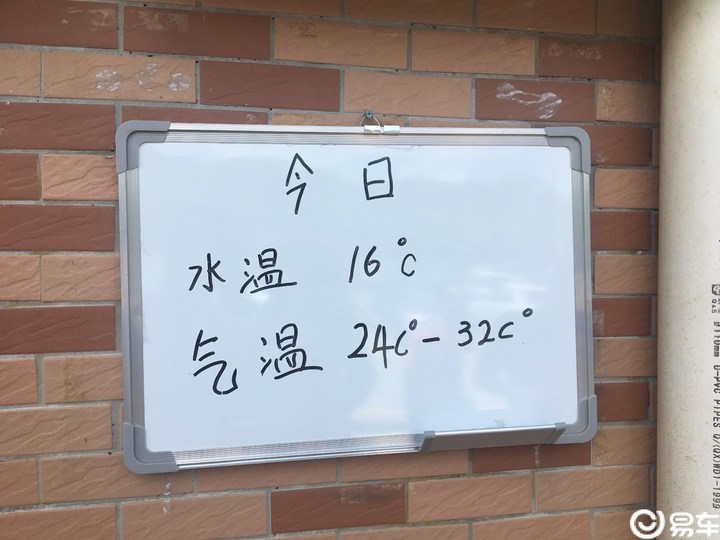 今日
水温 16°C
气温 24C°- 32C°
φ110mm U-PVC PIPES Q/QXJND1-1999
易车